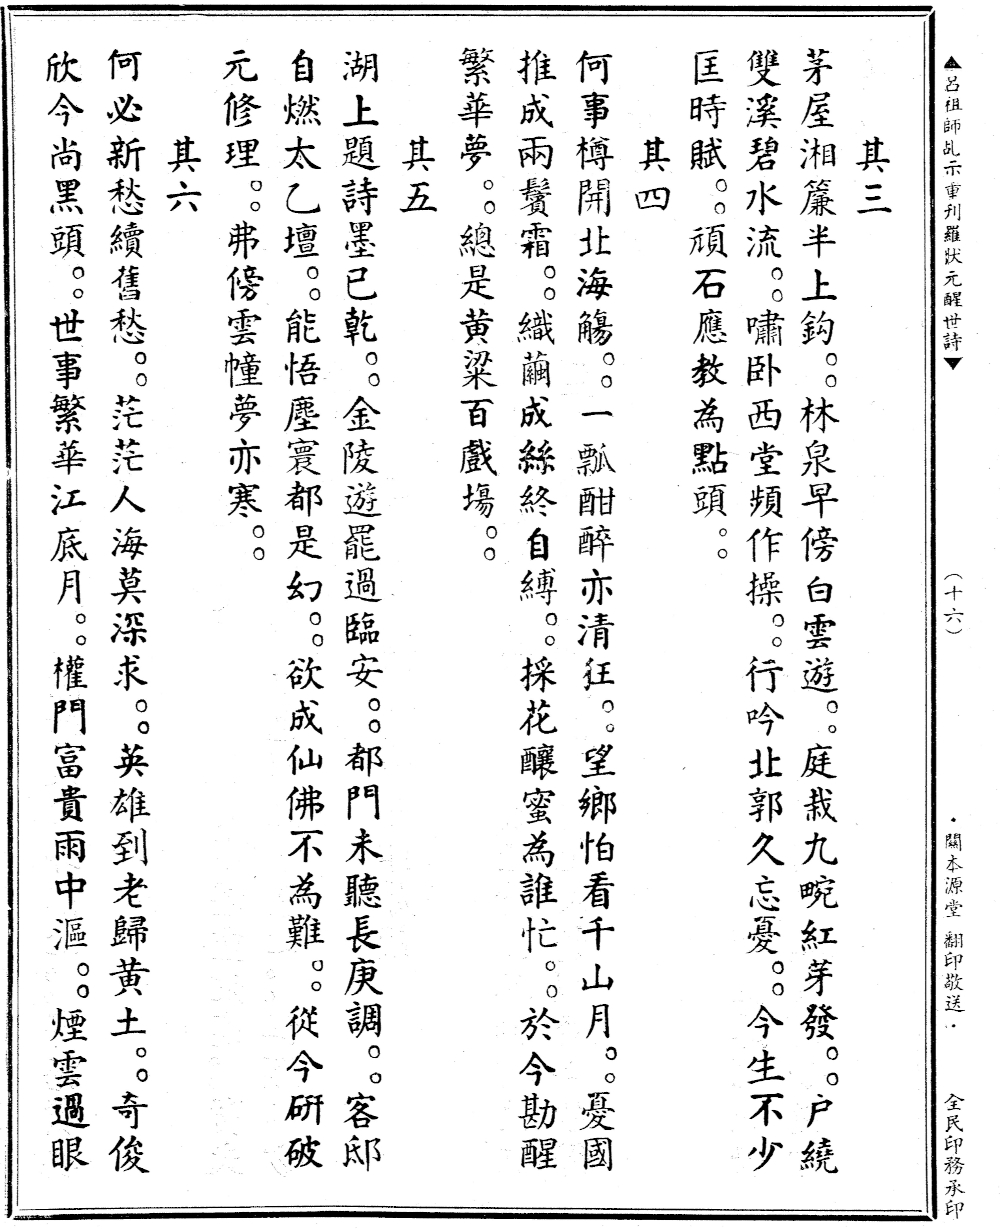 ▲呂祖師乩示重刊羅狀元醒世詩▼ （十六） ・關本源堂 翻印敬送・ 全民印務承印
其三
茅屋湘簾半上鈎。。林泉早傍白雲遊。。庭栽九畹紅芽發。。户繞
雙溪碧水流。。嘯卧西堂頻作操。。行吟北郭久忘憂。。今生不少
匡時賦。。頑石應教為點頭。。
其四
何事樽開北海觴。。一瓢酣醉亦清狂。。望鄉怕看千山月。。憂國
推成兩鬢霜。。織繭成絲終自縛。。採花釀蜜為誰忙。。於今勘醒
繁華夢。。總是黄粱百戲塲。。
其五
湖上題詩墨已乾。。金陵遊罷過臨安。。都門未聽長庚調。。客邸
自燃太乙壇。。能悟塵寰都是幻。。欲成仙佛不為難。。從今研破
元修理。。弗傍雲幢夢亦寒。。
其六
何必新愁續舊愁。。茫茫人海莫深求。。英雄到老歸黄土。。奇俊
欣今尚黑頭。。世事繁華江底月。。權門富貴雨中漚。。煙雲過眼